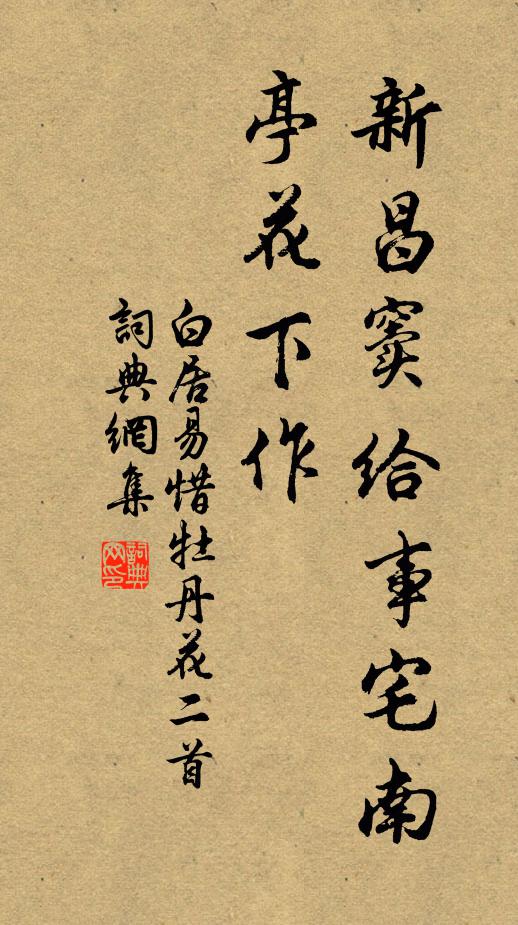 新昌竇給事宅南
亭花下作
白居易惜牡丹花二首
詞典網集
詞典
网印